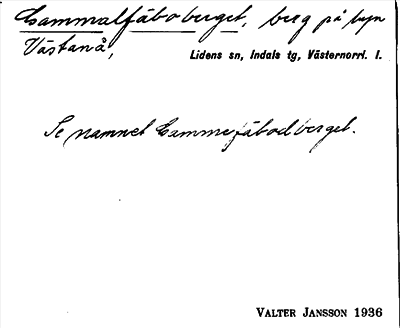 Gammalfäboberget, berg på byn
Västanå,
Lidens sn, Indals tg, Västernorrl. l.
Se namnet Gammelfäbodberget.
VALTER JANSSON 1936